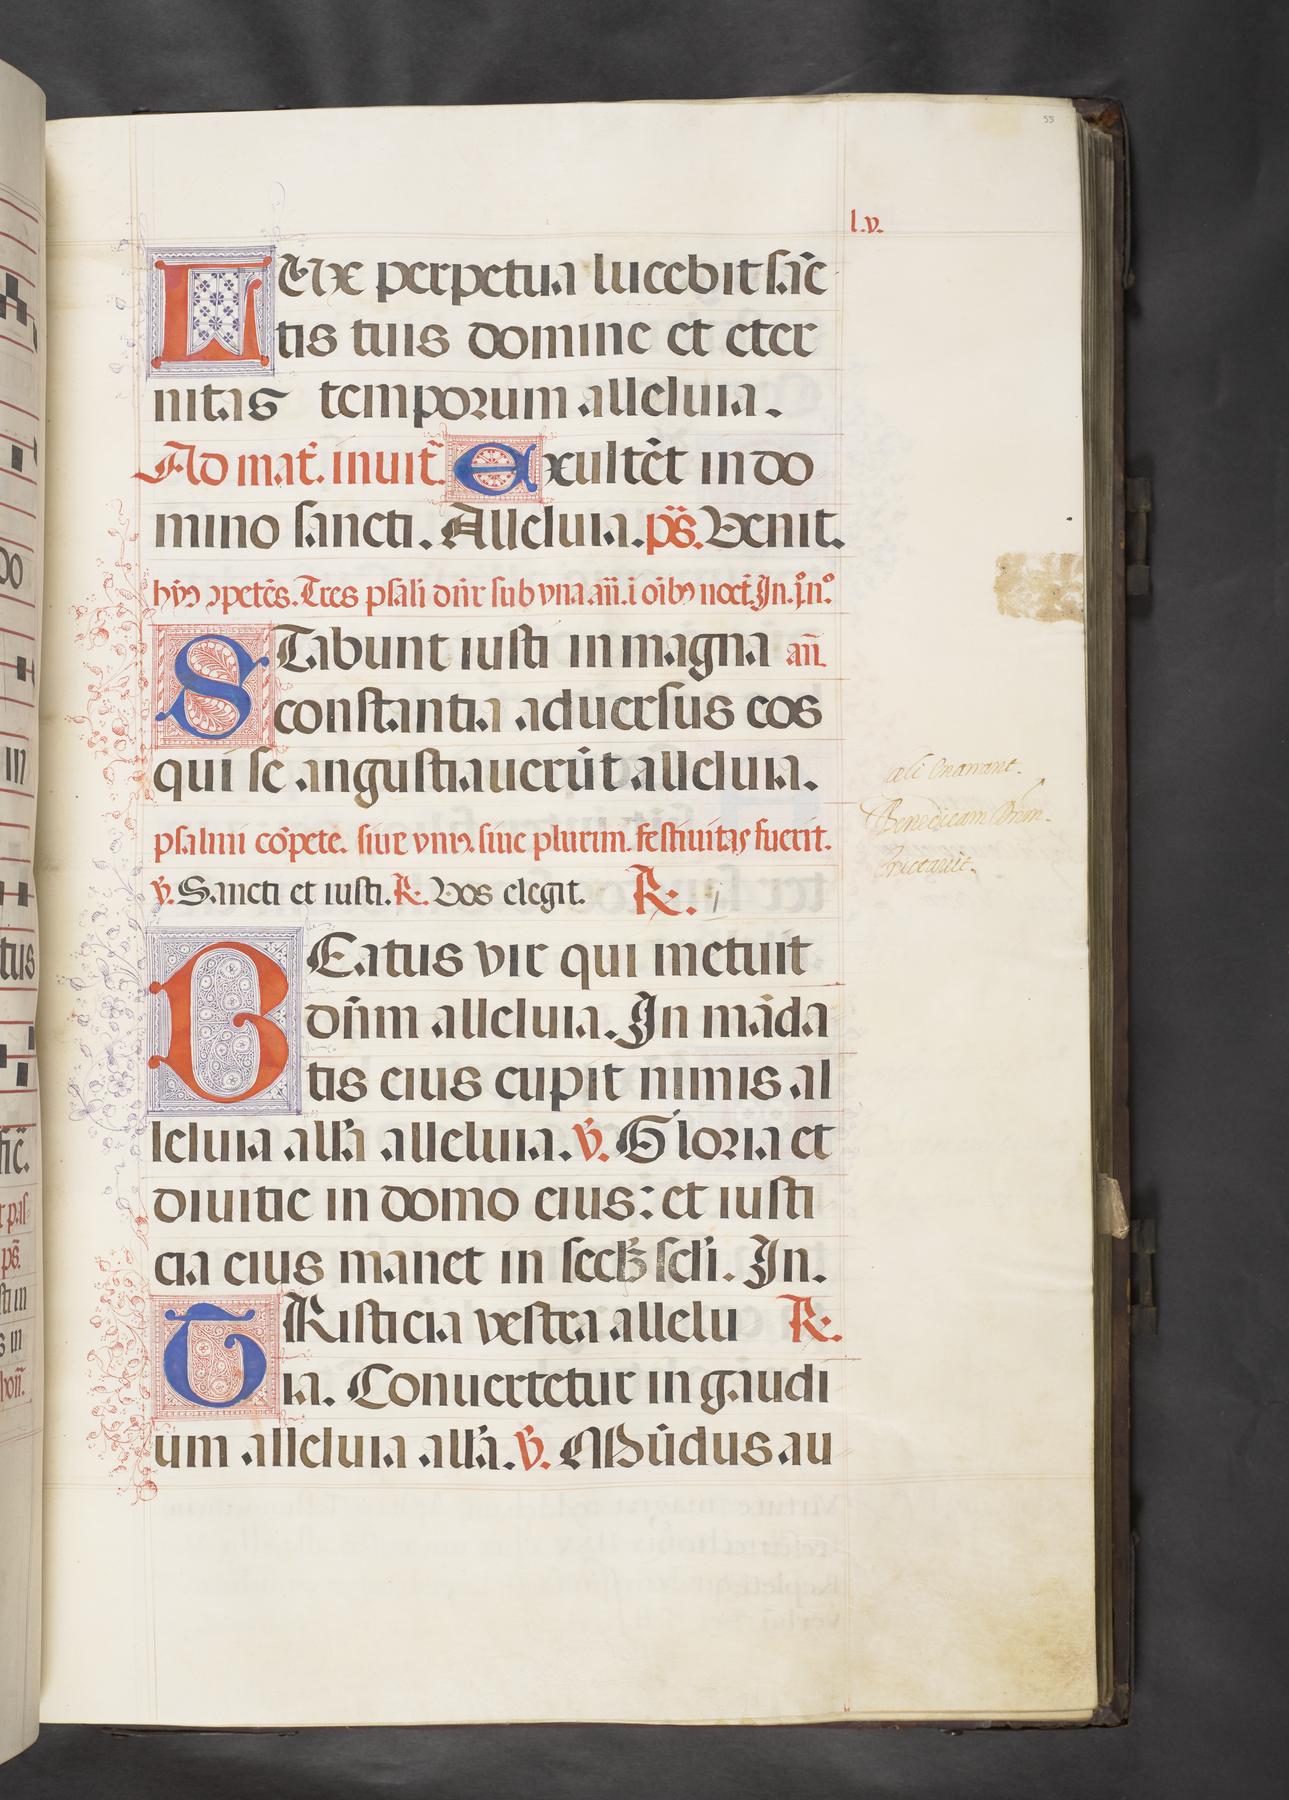 55
l.v.
LUx perpetua lucebit sāc
tis tuis domine et eter
nitas temporum alleluia.
Ad mat̄. inuit̄. Exultēt in do
mino sancti. Alleluia. ps̄. Venit.
hỹ9 ɔpetēs. Tres psāli dn̄r sub vna an̄. i oīb9 noct̄. In .j.º n.º
STabunt iusti in magna an̄
constantia aduersus eos
qui se angustiauerūt alleluia.
psalmi cōpetē. siue vni9. siue plurim. festiuitas fuerit.
℣. Sancti et iusti. ℟. Vos elegit. ℟. j
BEatus vir qui metuit
dn̄m alleluia. In māda
tis eius cupit nimis al
leluia all'a alleluia. ℣. Gloria et
diuitie in domo eius: et iusti
cia eius manet in secl'3 scl'i. In.
TRisticia vestra allelu ℟.
ia. Conuertetur in gaudi
um alleluia all'a. ℣. Mūdus au
celi enarrant.
Benedicam Dnm.
Eructauit.